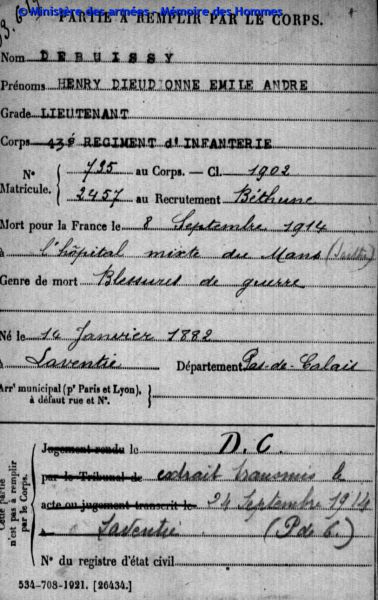 © Ministère des armées - Mémoire des Hommes
PARTIE A REMPLIR PAR LE CORPS.
Nom DEBUISSY
Prénoms HENRY DIEUD ONNE EMILE ANDRE
Grade LIEUTENANT
Corps 43è REGIMENT d'INFANTERIE
N° 725 au Corps. — Cl. 1902
Matricule. 2457 au Recrutement Béthune
Mort pour la France le 8 Septembre 1914
à l'hôpital mixte du Mans (Sarthe)
Genre de mort Blessures de guerre
Né le 14 Janvier 1882
à Laventie Département Pas-de-Calais
Arrt municipal (pr Paris et Lyon),
à défaut rue et N°.
Cette partie n'est pas à remplir par le Corps.
Jugement rendu le D. C.
par le Tribunal de extrait transmis le
acte ou jugement transcrit le 24 Septembre 1914
à Laventie (P de C.)
N° du registre d'état civil
534-708-1921. [26434.]